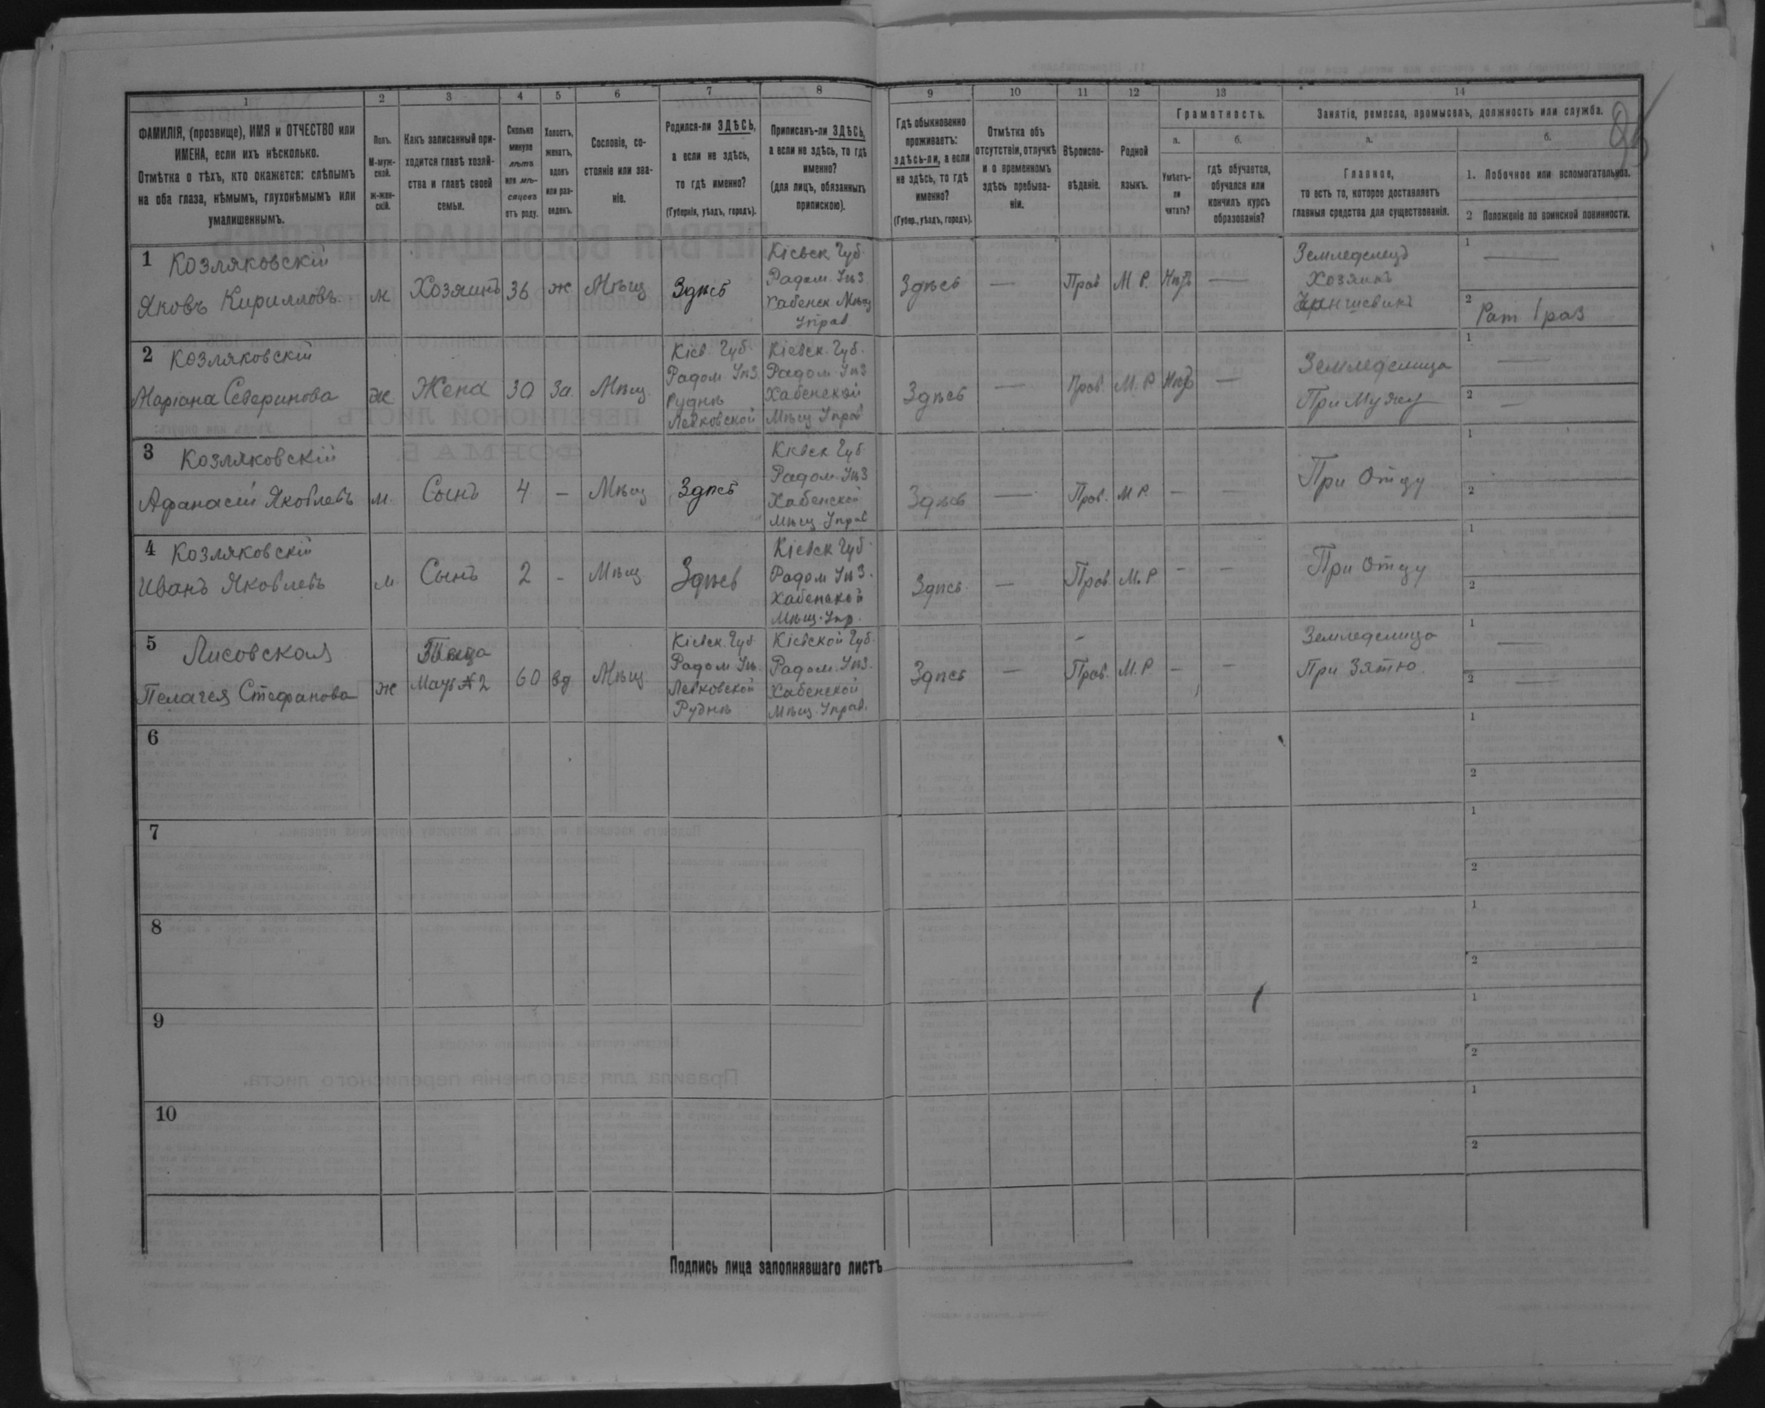 1 2 3 4 5 6 7 8 9 10 11 12 13 14
ФАМИЛІЯ, (прозвище), ИМЯ и ОТЧЕСТВО или
ИМЕНА, если ихъ нѣсколько.
Отмѣтка о тѣхъ, кто окажется: слѣпымъ
на оба глаза, нѣмымъ, глухонѣмымъ или
умалишеннымъ.
Полъ.
М-муж-
ской.
Ж-жен-
скій.
Какъ записанный при-
ходится главѣ хозяй-
ства и главѣ своей
семьи.
Сколько
минуло
лѣтъ
или мѣ-
сяцевъ
отъ роду.
Холостъ,
женатъ,
вдовъ
или раз-
веденъ.
Сословіе, со-
стояніе или зва-
ніе.
Родился-ли ЗДѢСЬ,
а если не здѣсь,
то гдѣ именно?
(Губернія, уѣздъ, городъ).
Приписанъ-ли ЗДѢСЬ,
а если не здѣсь, то гдѣ
именно?
(для лицъ, обязанныхъ
припискою).
Гдѣ обыкновенно
проживаетъ:
здѣсь-ли, а если
не здѣсь, то гдѣ
именно?
(Губер., уѣздъ, городъ).
Отмѣтка объ
отсутствіи, отлучкѣ
и о временномъ
здѣсь пребыва-
ніи.
Вѣроиспо-
вѣданіе.
Родной
языкъ.
Грамотность.
а. б.
Умѣетъ-
ли
читать?
гдѣ обучается,
обучался или
кончилъ курсъ
образованія?
Занятіе, ремесло, промыселъ, должность или служба.
а. б.
Главное,
то есть то, которое доставляетъ
главныя средства для существованія.
1. Побочное или вспомогательное.
2 Положеніе по воинской повинности.
1 Козляковскій
Яковъ Кирилловъ
м
Хозяинъ
36
ж
Мѣщ
Здѣсь
Кіевск Губ
Радом Уѣз
Хабенск Мѣщ
Управ
Здѣсь
—
Прав
М. Р.
Нѣтъ
—
Земледелецъ
Хозяинъ
Чиншевикъ
1 —
2 Рат 1 раз
2 Козляковскій
Маріана Северинова
ж
Жена
30
За
Мѣщ
Кіев. Губ.
Радом Уѣз
Руднѣ
Левковской
Кіевск. Губ.
Радом Уѣз
Хабенской
Мѣщ Управ
Здѣсь
—
Прав.
М. Р
Нѣтъ
—
Земледелица
При Мужу
1 —
2 —
3 Козляковскій
Афанасій Яковлевъ
м.
Сынъ
4
—
Мѣщ
Здѣсь
Кіевск Губ
Радом. Уѣз
Хабенской
Мѣщ Управ
Здѣсь
—
Прав.
М Р.
—
—
При Отцу
1
2
4 Козляковскій
Иванъ Яковлевъ
м.
Сынъ
2
-
Мѣщ
Здѣсь
Кіевск Губ.
Радом Уѣз.
Хабенской
Мѣщ. Упр.
Здѣсь.
—
Прав
М. Р
—
—
При Отцу
1
2
5 Лисовская
Пелагея Стефанова
ж
№ 2
60
вд
Мѣщ
Кіевск. Губ
Радом Уѣ.
Левковской
Руднѣ
Кіевской Губ.
Радом. Уѣз.
Хабенской
Мѣщ. Управ.
Здѣсь
—
Прав.
М. Р
—
—
Земледелица
При Зятю.
1 —
2 —
6
1
2
7
1
2
8
1
2
9
1
2
10
1
2
Подпись лица заполнявшаго листъ